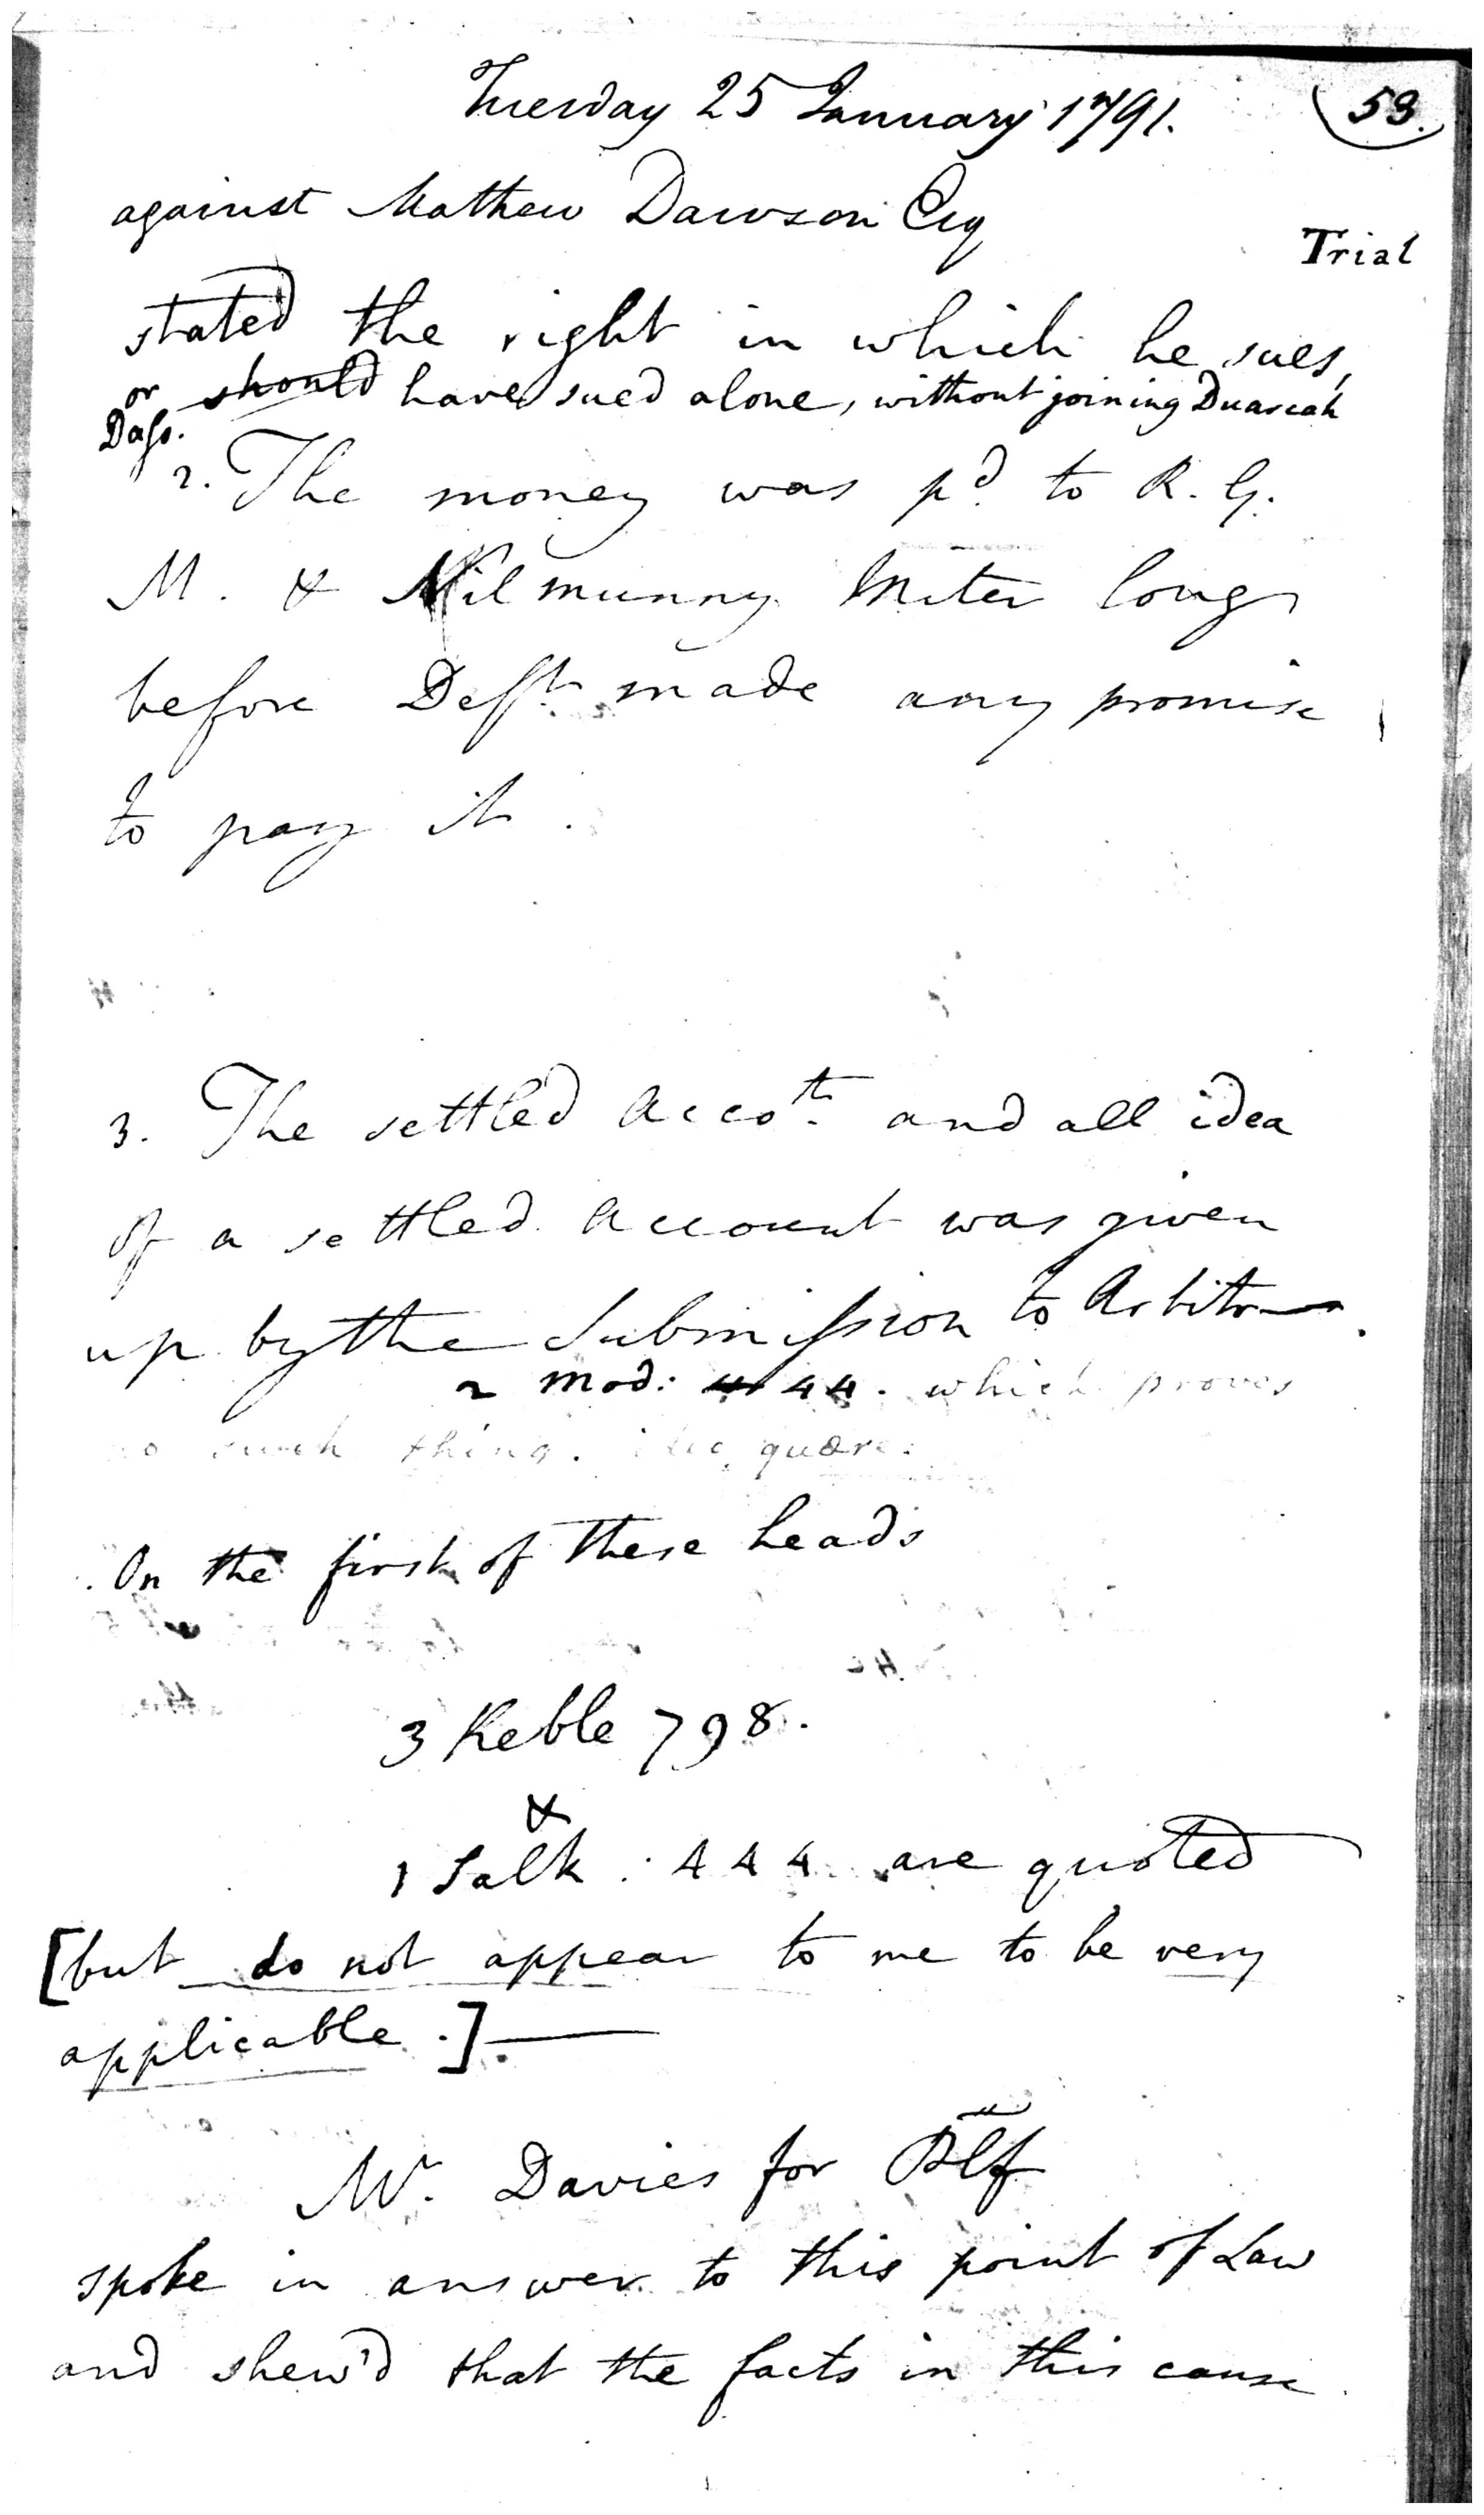 Tuesday 25 January 1791.
53.
against Mathew Dawson Esq
Trial
stated the right in which he sues,
or should have sued alone, without joining Duarcah
Dass.
2. The money was pd. to R. G.
M. & Nilmunny Miter long
before Deft. made any promise
to pay it.
3. The settled Accot. and all idea
of a settled Account was given
up by the Submission to Arbitr.
2 Mod: 44. which proves
no such thing. quære.
On the first of these heads
3 Keble 798.
&
1 Salk: 444 are quoted
[but do not appear to me to be very
applicable.]
Mr. Davies for Plf
spoke in answer to this point of Law
and shew'd that the facts in this cause